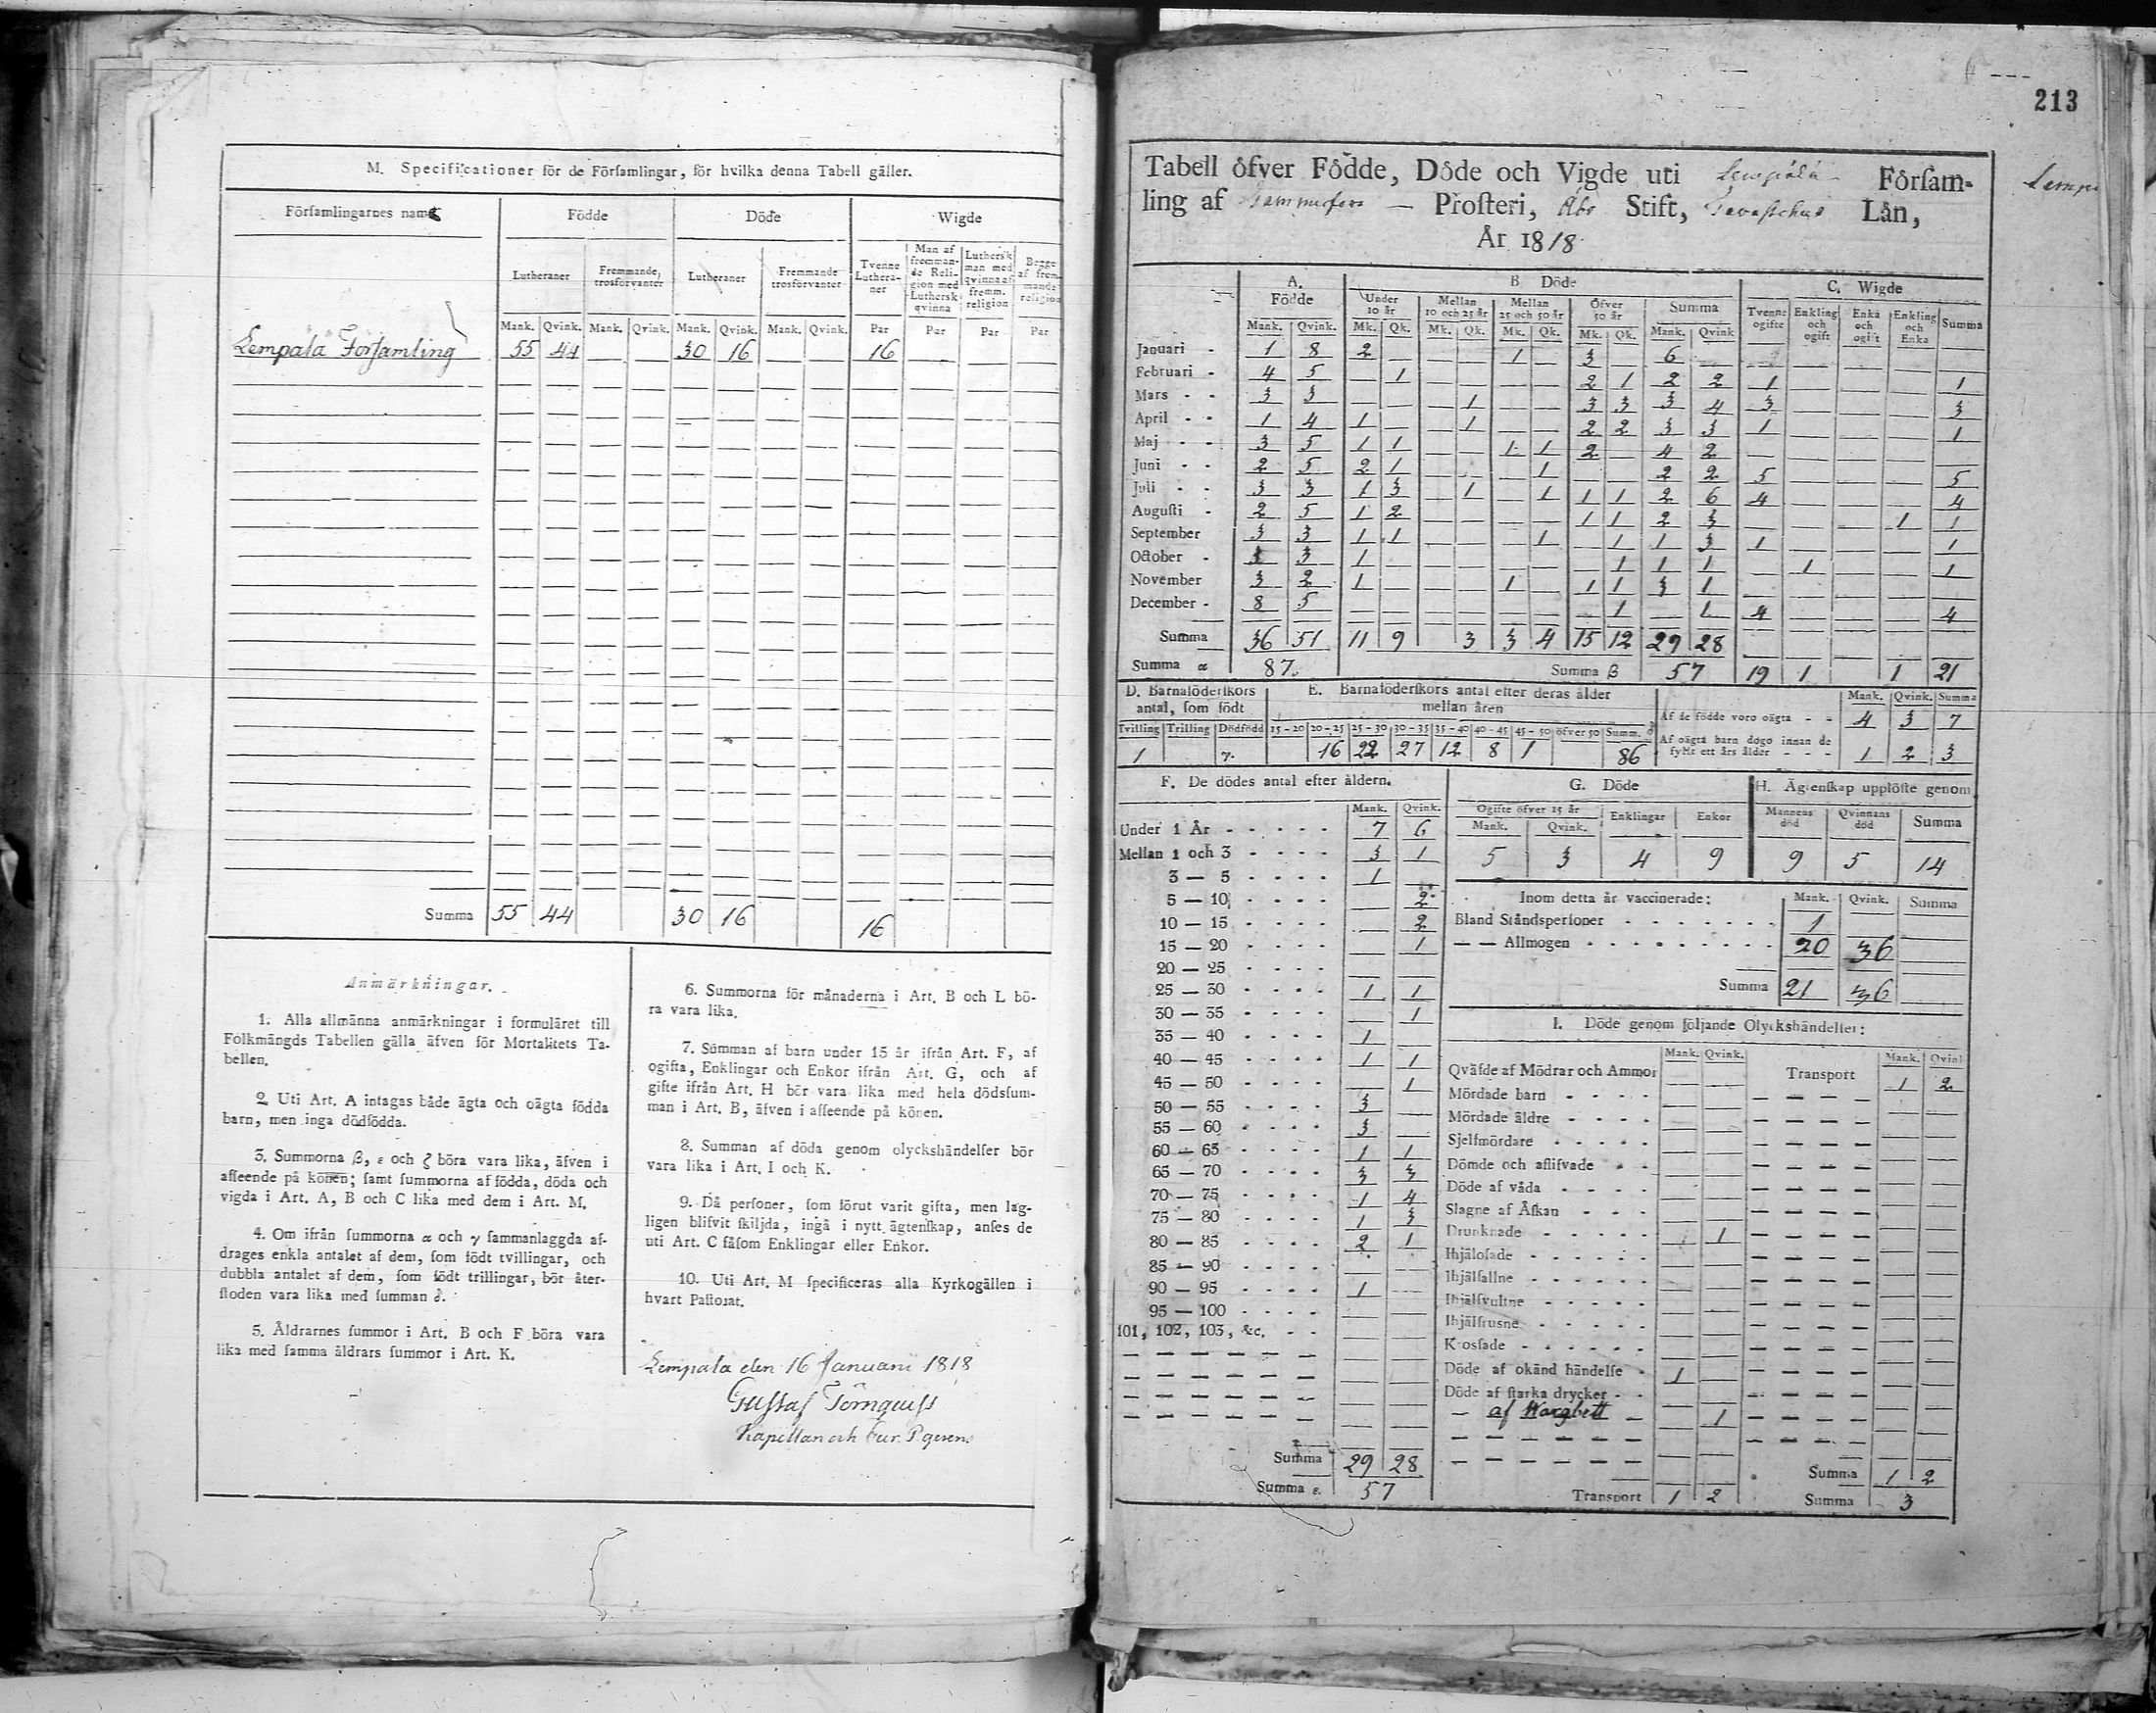 M. Specificationer för de Församlingar, för hvilka denna Tabell gäller.
Församlingarnes namn Födde Döde Wigde
Lutheraner Fremmande trosförvanter Lutheraner Fremmande trosförvanter Tvenne Lutheraner Man af fremmande Religion med Luthersk qvinna Luthersk man med qvinna af fremm. religion Begge af fremmande religion
Mank. Qvink. Mank. Qvink. Mank. Qvink. Mank. Qvink. Par Par Par Par
Lempala Församling 55 44 — — 30 16 — — 16 — — —
Summa 55 44 30 16 16
Anmärkningar.
1. Alla allmänna anmärkningar i formuläret till
Folkmängds Tabellen gälla äfven för Mortalitets Ta-
bellen.
2. Uti Art. A intagas både ägta och oägta födda
barn, men inga dödfödda.
3. Summorna β, ε och ζ böra vara lika, äfven i
afseende på könen; samt summorna af födda, döda och
vigda i Art. A, B och C lika med dem i Art. M.
4. Om ifrån summorna α och γ sammanlaggda af-
drages enkla antalet af dem, som födt tvillingar, och
dubbla antalet af dem, som födt trillingar, bör åter-
stoden vara lika med summan δ.
5. Åldrarnes summor i Art. B och F böra vara
lika med samma åldrars summor i Art. K.
6. Summorna för månaderna i Art. B och L bö-
ra vara lika.
7. Summan af barn under 15 år ifrån Art. F, af
ogifta, Enklingar och Enkor ifrån Art. G, och af
gifte ifrån Art. H bör vara lika med hela dödsfum-
man i Art. B, äfven i afseende på könen.
8. Summan af döda genom olyckshändelser bör
vara lika i Art. I och K.
9. Då personer, som förut varit gifta, men lag-
ligen blifvit skiljda, ingå i nytt ägtenskap, anses de
uti Art. C såsom Enklingar eller Enkor.
10. Uti Art. M specificeras alla Kyrkogällen i
hvart Pastorat.
Lempala den 16 Januari 1818
Gustaf Törnquist
Kapellan och
213
Tabell öfver Födde, Döde och Vigde uti Lempälä Församling
ling af Tammerfors — Prosteri, Åbo Stift, Tavastehus Län,
År 1818
Lemp
A. Födde B. Döde C. Wigde
Under 10 år Mellan 10 och 25 år Mellan 25 och 50 år Öfver 50 år Summa Tvenne ogifte Enkling och ogift Enka och ogift Enkling och Enka Summa
Mank. Qvink. Mk. Qk. Mk. Qk. Mk. Qk. Mk. Qk. Mank. Qvink
Januari - 1 8 2 — — — 1 — 3 — 6 —
Februari - 4 5 — 1 — — — — 2 1 2 2 1 — — — 1
Mars - - 3 3 — — — 1 — — 3 3 3 4 3 — — — 3
April - - 1 4 1 — — 1 — — 2 2 3 3 1 — — — 1
Maj - - 3 5 1 1 — — 1 1 2 — 4 2 — — — — —
Juni - - 2 5 2 1 — — — 1 — — 2 2 5 — — — 5
Juli - - 3 3 1 3 — 1 — 1 1 1 2 6 4 — — — 4
Augusti - 2 5 1 2 — — — — 1 1 2 3 — — — 1 1
September 3 3 1 1 — — — 1 — 1 1 3 1 — — — 1
October - 3 3 1 — — — — — — 1 1 1 — 1 — — 1
November 3 2 1 — — — 1 — 1 1 3 1 — — — — —
December - 8 5 — — — — — — — 1 — 1 4 — — — 4
Summa 36 51 11 9 3 3 4 15 12 29 28
Summa α 87. Summa β 57 19 1 1 21
D. Barnaföderskors antal, som födt
Tvilling Trilling Dödfödd
1 γ.
E. Barnaföderskors antal efter deras ålder mellan åren
15-20 20-25 25-30 30-35 35-40 40-45 45-50 öfver 50 Summ. δ
16 22 27 12 8 1 86
Mank. Qvink. Summa
Af de födde voro oägta - - 4 3 7
Af oägta barn dogo innan de fyllt ett års ålder - - - 1 2 3
F. De dödes antal efter åldern.
Mank. Qvink.
Under 1 År - - - - - 7 6
Mellan 1 och 3 - - - - 3 1
3 — 5 - - - - 1 —
5 — 10 - - - - — 2
10 — 15 - - - - — 2
15 — 20 - - - - — 1
20 — 25 - - - - — —
25 — 30 - - - - 1 1
30 — 35 - - - - — 1
35 — 40 - - - - 1 —
40 — 45 - - - - 1 1
45 — 50 - - - - — 1
50 — 55 - - - - 3 —
55 — 60 - - - - 3 —
60 — 65 - - - - 1 1
65 — 70 - - - - 3 3
70 — 75 - - - - 1 4
75 — 80 - - - - 1 3
80 — 85 - - - - 2 1
85 — 90 - - - - — —
90 — 95 - - - - 1 —
95 — 100 - - - - — —
101, 102, 103, &c. - - — —
Summa 29 28
Summa ε. 57
G. Döde
Ogifte öfver 15 år Enklingar Enkor
Mank. Qvink.
5 3 4 9
H. Ägtenskap upplöste genom
Mannens död Qvinnans död Summa
9 5 14
Inom detta år vaccinerade: Mank. Qvink. Summa
Bland Ståndspersoner - - - - - - - 1 —
— — Allmogen - - - - - - - - - 20 36
Summa 21 36
I. Döde genom följande Olyckshändelser:
Mank. Qvink. Mank. Qvink
Qväfde af Mödrar och Ammor — — Transport 1 2
Mördade barn - - - - — —
Mördade äldre - - - - — —
Sjelfmördare - - - - - — —
Dömde och aflifvade - - — —
Döde af våda - - - - — —
Slagne af Åskan - - - — —
Drunknade - - - - - — 1
Ihjälosade - - - - - - — —
Ihjälfallne - - - - - - — —
Ihjälsvultne - - - - - — —
Ihjälfrusne - - - - - — —
Krossade - - - - - - — —
Döde af okänd händelse - 1 —
Döde af starka drycker - - — —
— af Wargbett — 1
Summa 1 2
Transport 1 2 Summa 3